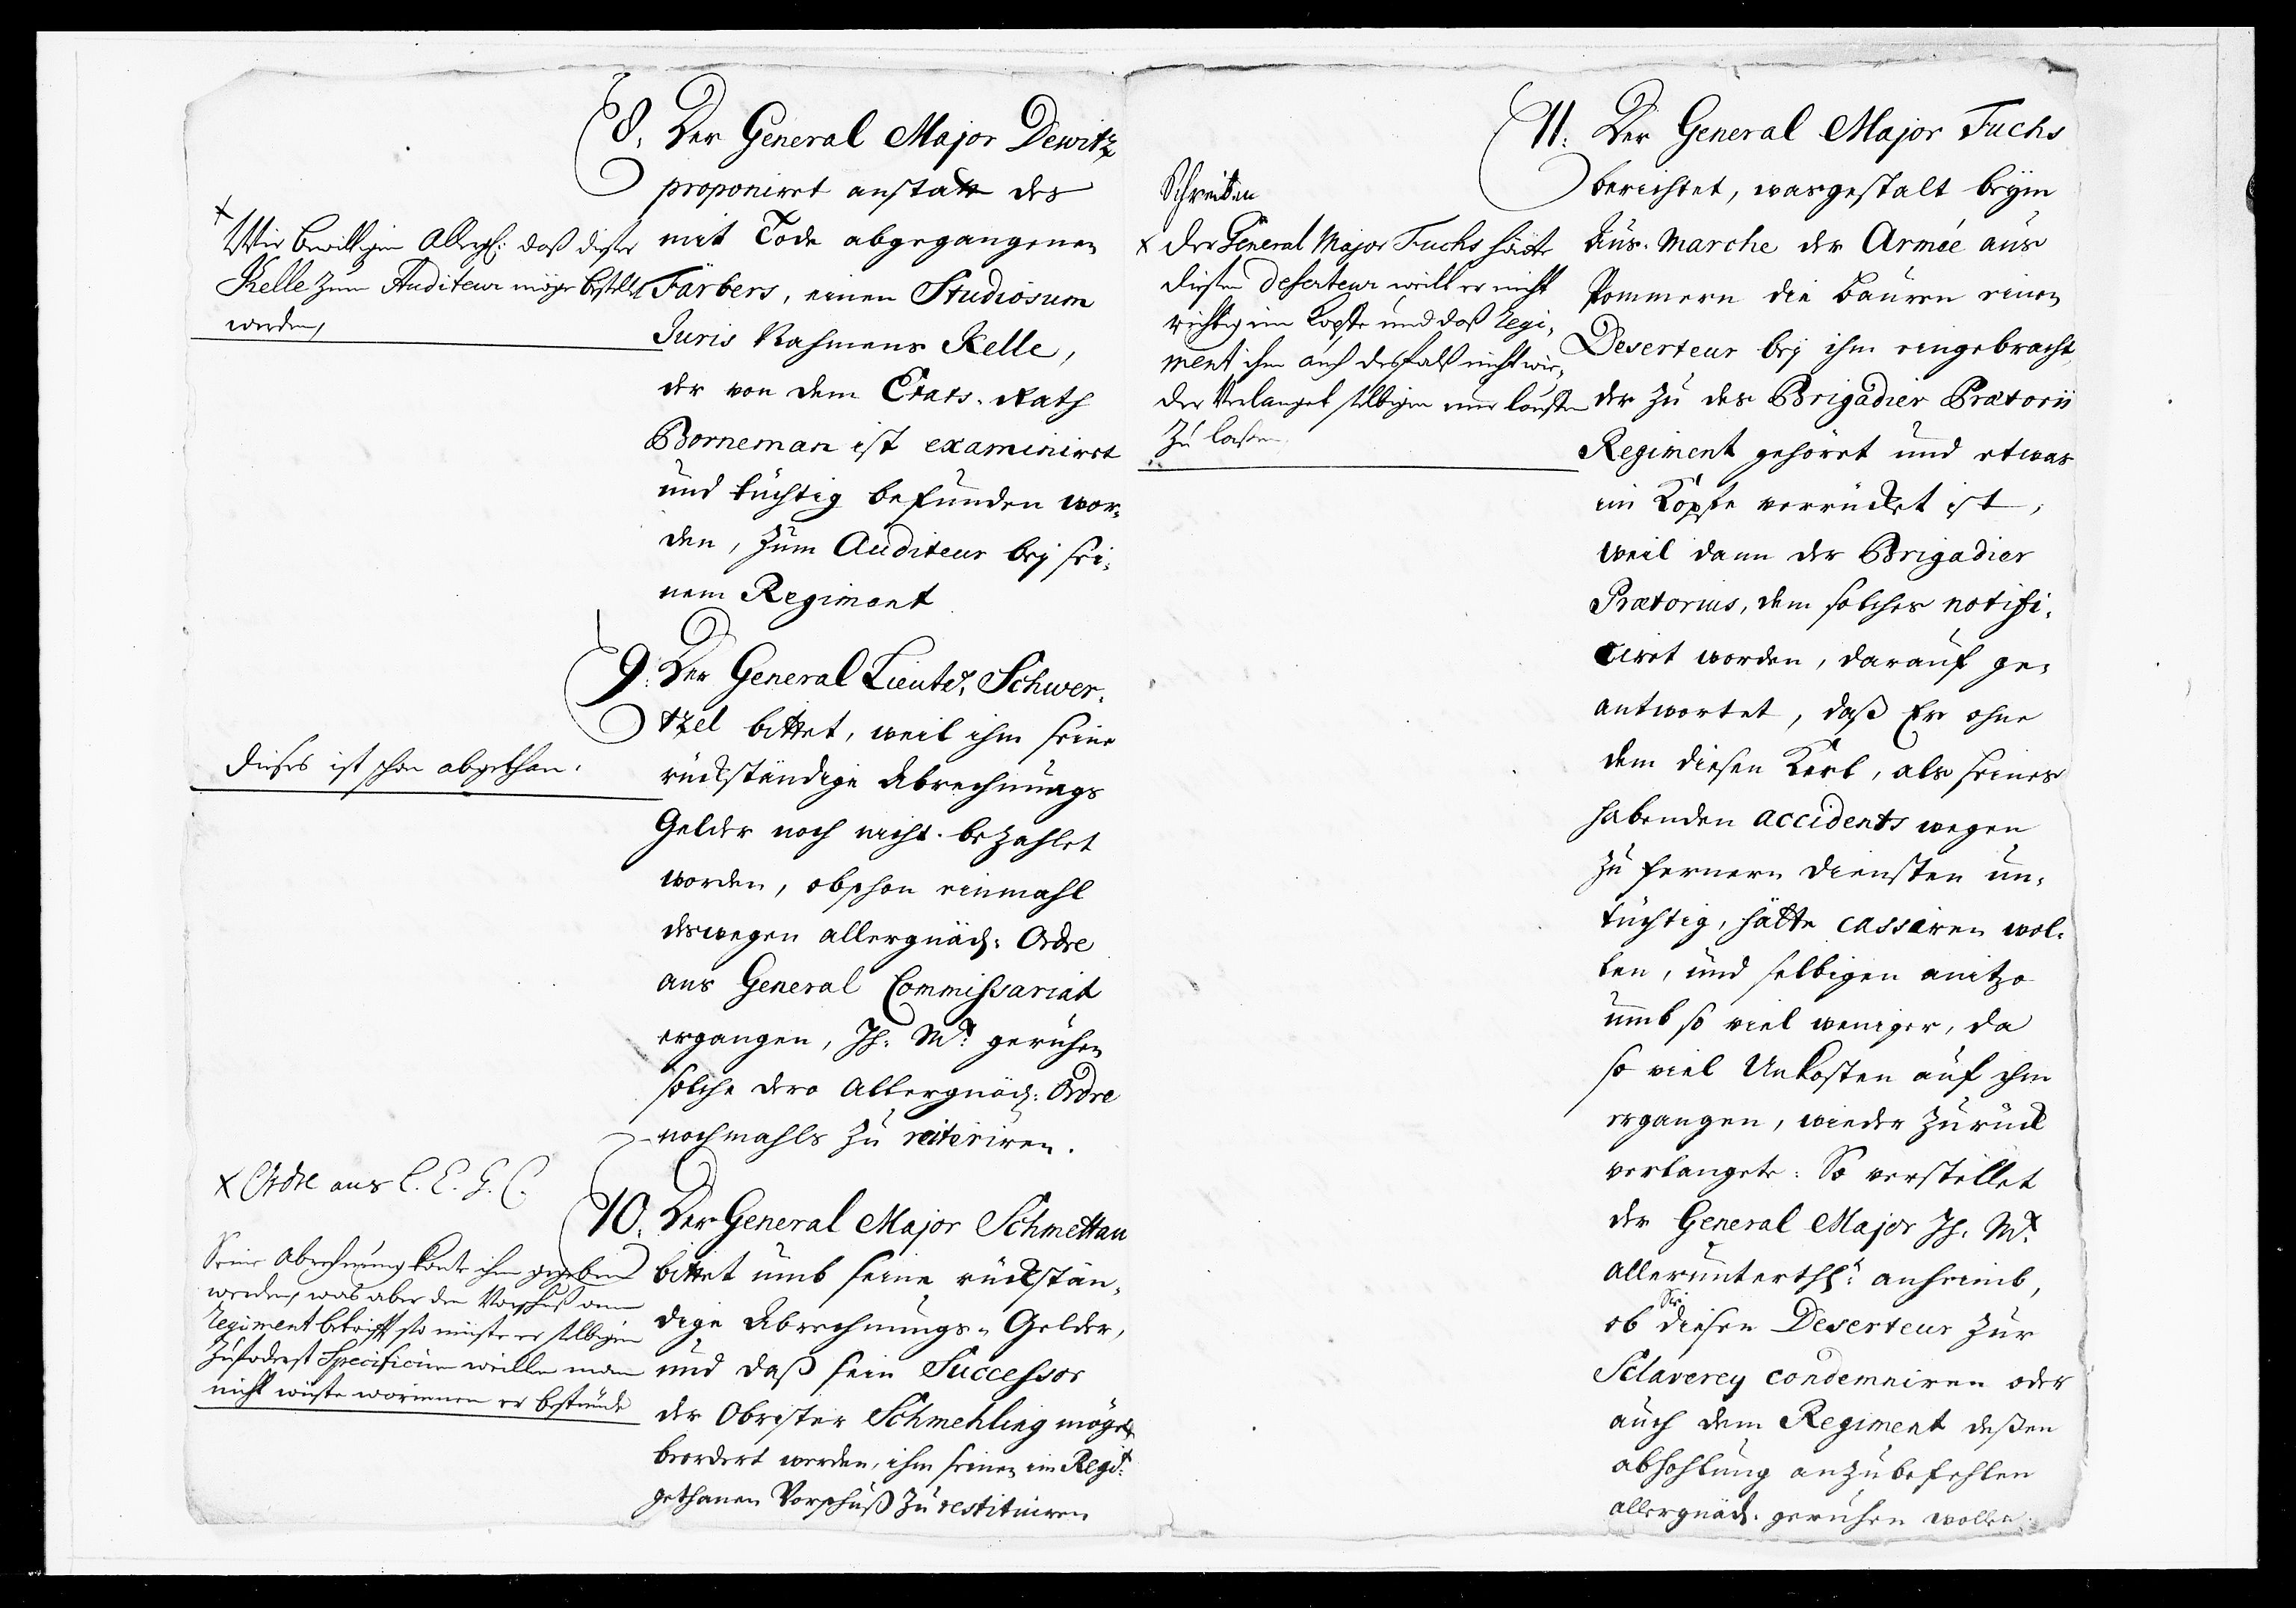 8. Der General Major Dewitz
proponiret anstatt des
mit Tode abgegangenen
Färbers, einen Studiosum
Juris Nahmens Kelle,
der von dem Etats-Rath
Borneman ist examiniret
und tüchtig befunden wor-
den, zum Auditeur bey sei-
nem Regiment
x
Wir bewilligen Allergn: daß dieser
Kelle zum Auditeur möge bestellt
werden,
9. Der General Lieutn. Schwer-
tzel bittet, weil ihm seine
rückständige Abrechnungs
Gelder noch nicht bezahlet
worden, obschon einmahl
deswegen allergnäd: Ordre
ans General Commissariat
ergangen, Ih: Mt: geruhen
solche dero Allergnäd: Ordre
nochmahls zu reiteriren.
Dieses ist schon abgethan.
10. Der General Major Schmettau
bittet umb seine rückstän-
dige Abrechnungs-Gelder,
und daß sein Successor
der Obrister Schmehling möge
beordert werden, ihm seinen im Regt:
gethanen Vorschuß zu restituiren
x Ordre ans L. E. G. C.
Seine Abrechnung konte ihm gegeben
werden, was aber den Vorschuß am
Regiment betrifft so müste er selbigen
zuforderst Specificiren weillen man
nicht wüste worinnen er bestünde
11. Der General Major Fuchs
berichtet, wasgestalt beym
Aus-Marche der Armée aus
Pommern die Bauren einen
Deserteur bey ihm eingebracht,
der zu des Brigadier Prætorii
Regiment gehöret und etwas
im Kopfe verrücket ist,
weil dann der Brigadier
Prætorius, dem solches notifi-
ciret worden, darauf ge-
antwortet, daß Er ohne
dem diesen Kerl, als seines
habenden accidents wegen
zu fernern Diensten un-
tüchtig, hätte cassiren wol-
len, und selbigen anitzo
umb so viel weniger, da
so viel Unkosten auf ihm
ergangen, wieder zurück
verlangete: So verstellet
der General Major Ih: Mt:
allerunterth: anheimb,
ob Sie diesen Deserteur zur
Sclaverey condemniren oder
auch dem Regiment deßen
abhohlung anzubefehlen
allergnäd: geruhen wollen.
Schreiben
x Der General Major Fuchs hätte
diesen Deserteur weill er nicht
richtig im Kopfe und daß Regi-
ment ihn auch desfals nicht wie-
der Verlanget selbigen nur lauffen
zu laßen.